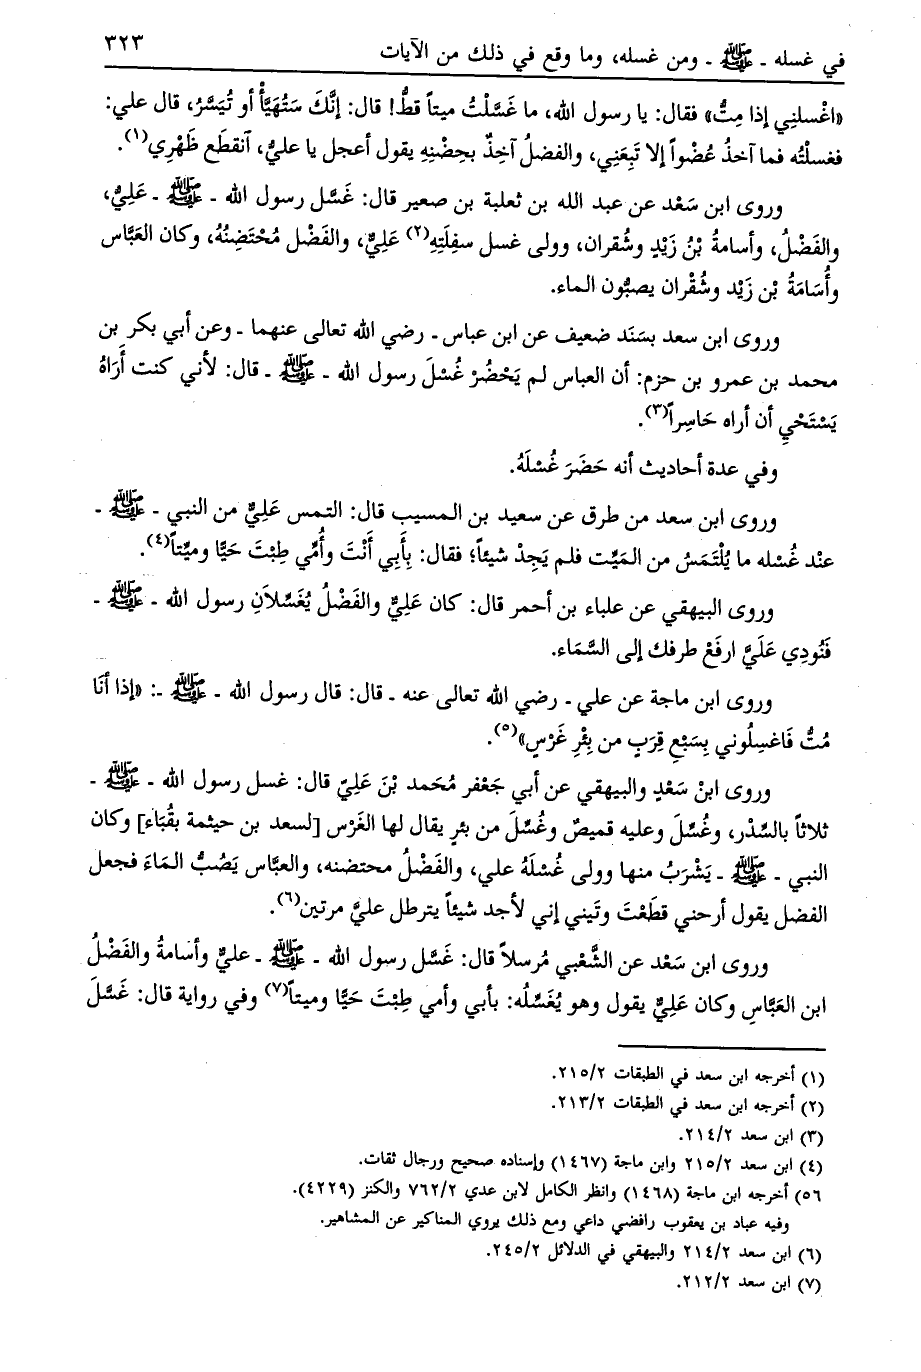 في غسله ـ ﷺ ـ ومن غسله، وما وقع في ذلك من الآيات ٣٢٣
«اغْسلنِي إذا مِتُّ» فقال: يا رسول الله، ما غَسَّلْتُ ميتاً قطُّ! قال: إنَّكَ سَتُهَيَّأُ أو تُيَسَّرُ، قال علي:
فغسلْتُه فما آخذُ عُضْواً إلا تَبِعَنِي، والفضلُ آخِذٌ بحِضْنِهِ يقول أعجل يا عليُّ، آنقطَع ظَهْرِي(١).
وروى ابن سَعْد عن عبد الله بن ثعلبة بن صعير قال: غَسَّل رسول الله ـ ﷺ ـ عَلِيُّ،
والفَضْلُ، وأسامةُ بْنُ زَيْدٍ وشُقران، وولى غسل سفِلَتِهِ(٢) عَلِيٌّ، والفَضْل مُحْتَضِنُهُ، وكان العَبَّاس
وأُسَامَةُ بْن زَيْد وشُقْران يصبُّون الماء.
وروى ابن سعد بسَنَد ضعيف عن ابن عباس ـ رضي الله تعالى عنهما ـ وعن أبي بكر بن
محمد بن عمرو بن حزم: أن العباس لم يَحْضُرْ غُسْلَ رسول الله ـ ﷺ ـ قال: لأني كنت أَرَاهُ
يَسْتَحْيِ أن أراه حَاسِراً(٣).
وفي عدة أحاديث أنه حَضَرَ غُسْلَهُ.
وروى ابن سعد من طرق عن سعيد بن المسيب قال: التمس عَلِيٌّ من النبي ـ ﷺ ـ
عند غُسْله ما يُلْتَمَسُ من المَيِّت فلم يَجِدْ شيئاً؛ فقال: بِأَبِي أَنْتَ وأُمِّي طِبْتَ حَيًّا وميِّتاً(٤).
وروى البيهقي عن علباء بن أحمر قال: كان عَلِيٌّ والفَضْلُ يُغَسِّلاَنِ رسول الله ـ ﷺ ـ
فَنُودِي عَلَيَّ ارفَعْ طرفك إلى السَّمَاء.
وروى ابن ماجة عن علي ـ رضي الله تعالى عنه ـ قال: قال رسول الله ـ ﷺ ـ: «إذا أنَا
مُتُّ فَاغسِلُوني بِسَبْعِ قِرَبٍ من بِئْرِ غَرْسٍ»(٥).
وروى ابنْ سَعْدٍ والبيهقي عن أبي جَعْفر مُحَمد بْنَ عَلِيّ قال: غسل رسول الله ـ ﷺ ـ
ثلاثاً بالسِّدْر، وغُسِّلَ وعليه قميصٌ وغُسِّلَ من بئرٍ يقال لها الغَرْس [لسعد بن حيثمة بقُبَاء] وكان
النبي ـ ﷺ ـ يَشْرَبُ منها وولى غُسْلَهُ علي، والفَضْلُ محتضنه، والعبَّاس يَصُبُّ المَاءَ فجعل
الفضل يقول أرحني قطَعْتَ وتَيني إني لأجد شيئاً يترطل عليَّ مرتين(٦).
وروى ابن سَعْد عن الشَّعْبي مُرسلاً قال: غَسَّل رسول الله ـ ﷺ ـ عليٌّ وأسامةُ والفَضْلُ
ابن العَبَّاسِ وكان عَلِيٌّ يقول وهو يُغَسِّلُه: بأبي وأمي طِبْتَ حَيًّا وميتاً(٧) وفي رواية قال: غَسَّلَ
(١) أخرجه ابن سعد في الطبقات ٢١٥/٢.
(٢) أخرجه ابن سعد في الطبقات ٢١٣/٢.
(٣) ابن سعد ٢١٤/٢.
(٤) ابن سعد ٢١٥/٢ وابن ماجة (١٤٦٧) وإسناده صحيح ورجال ثقات.
(٥٦ أخرجه ابن ماجة (١٤٦٨) وانظر الكامل لابن عدي ٧٦٢/٢ والكنز (٤٢٢٩).
وفيه عباد بن يعقوب رافضي داعي ومع ذلك يروي المناكير عن المشاهير.
(٦) ابن سعد ٢١٤/٢ والبيهقي في الدلائل ٢٤٥/٢.
(٧) ابن سعد ٢١٢/٢.